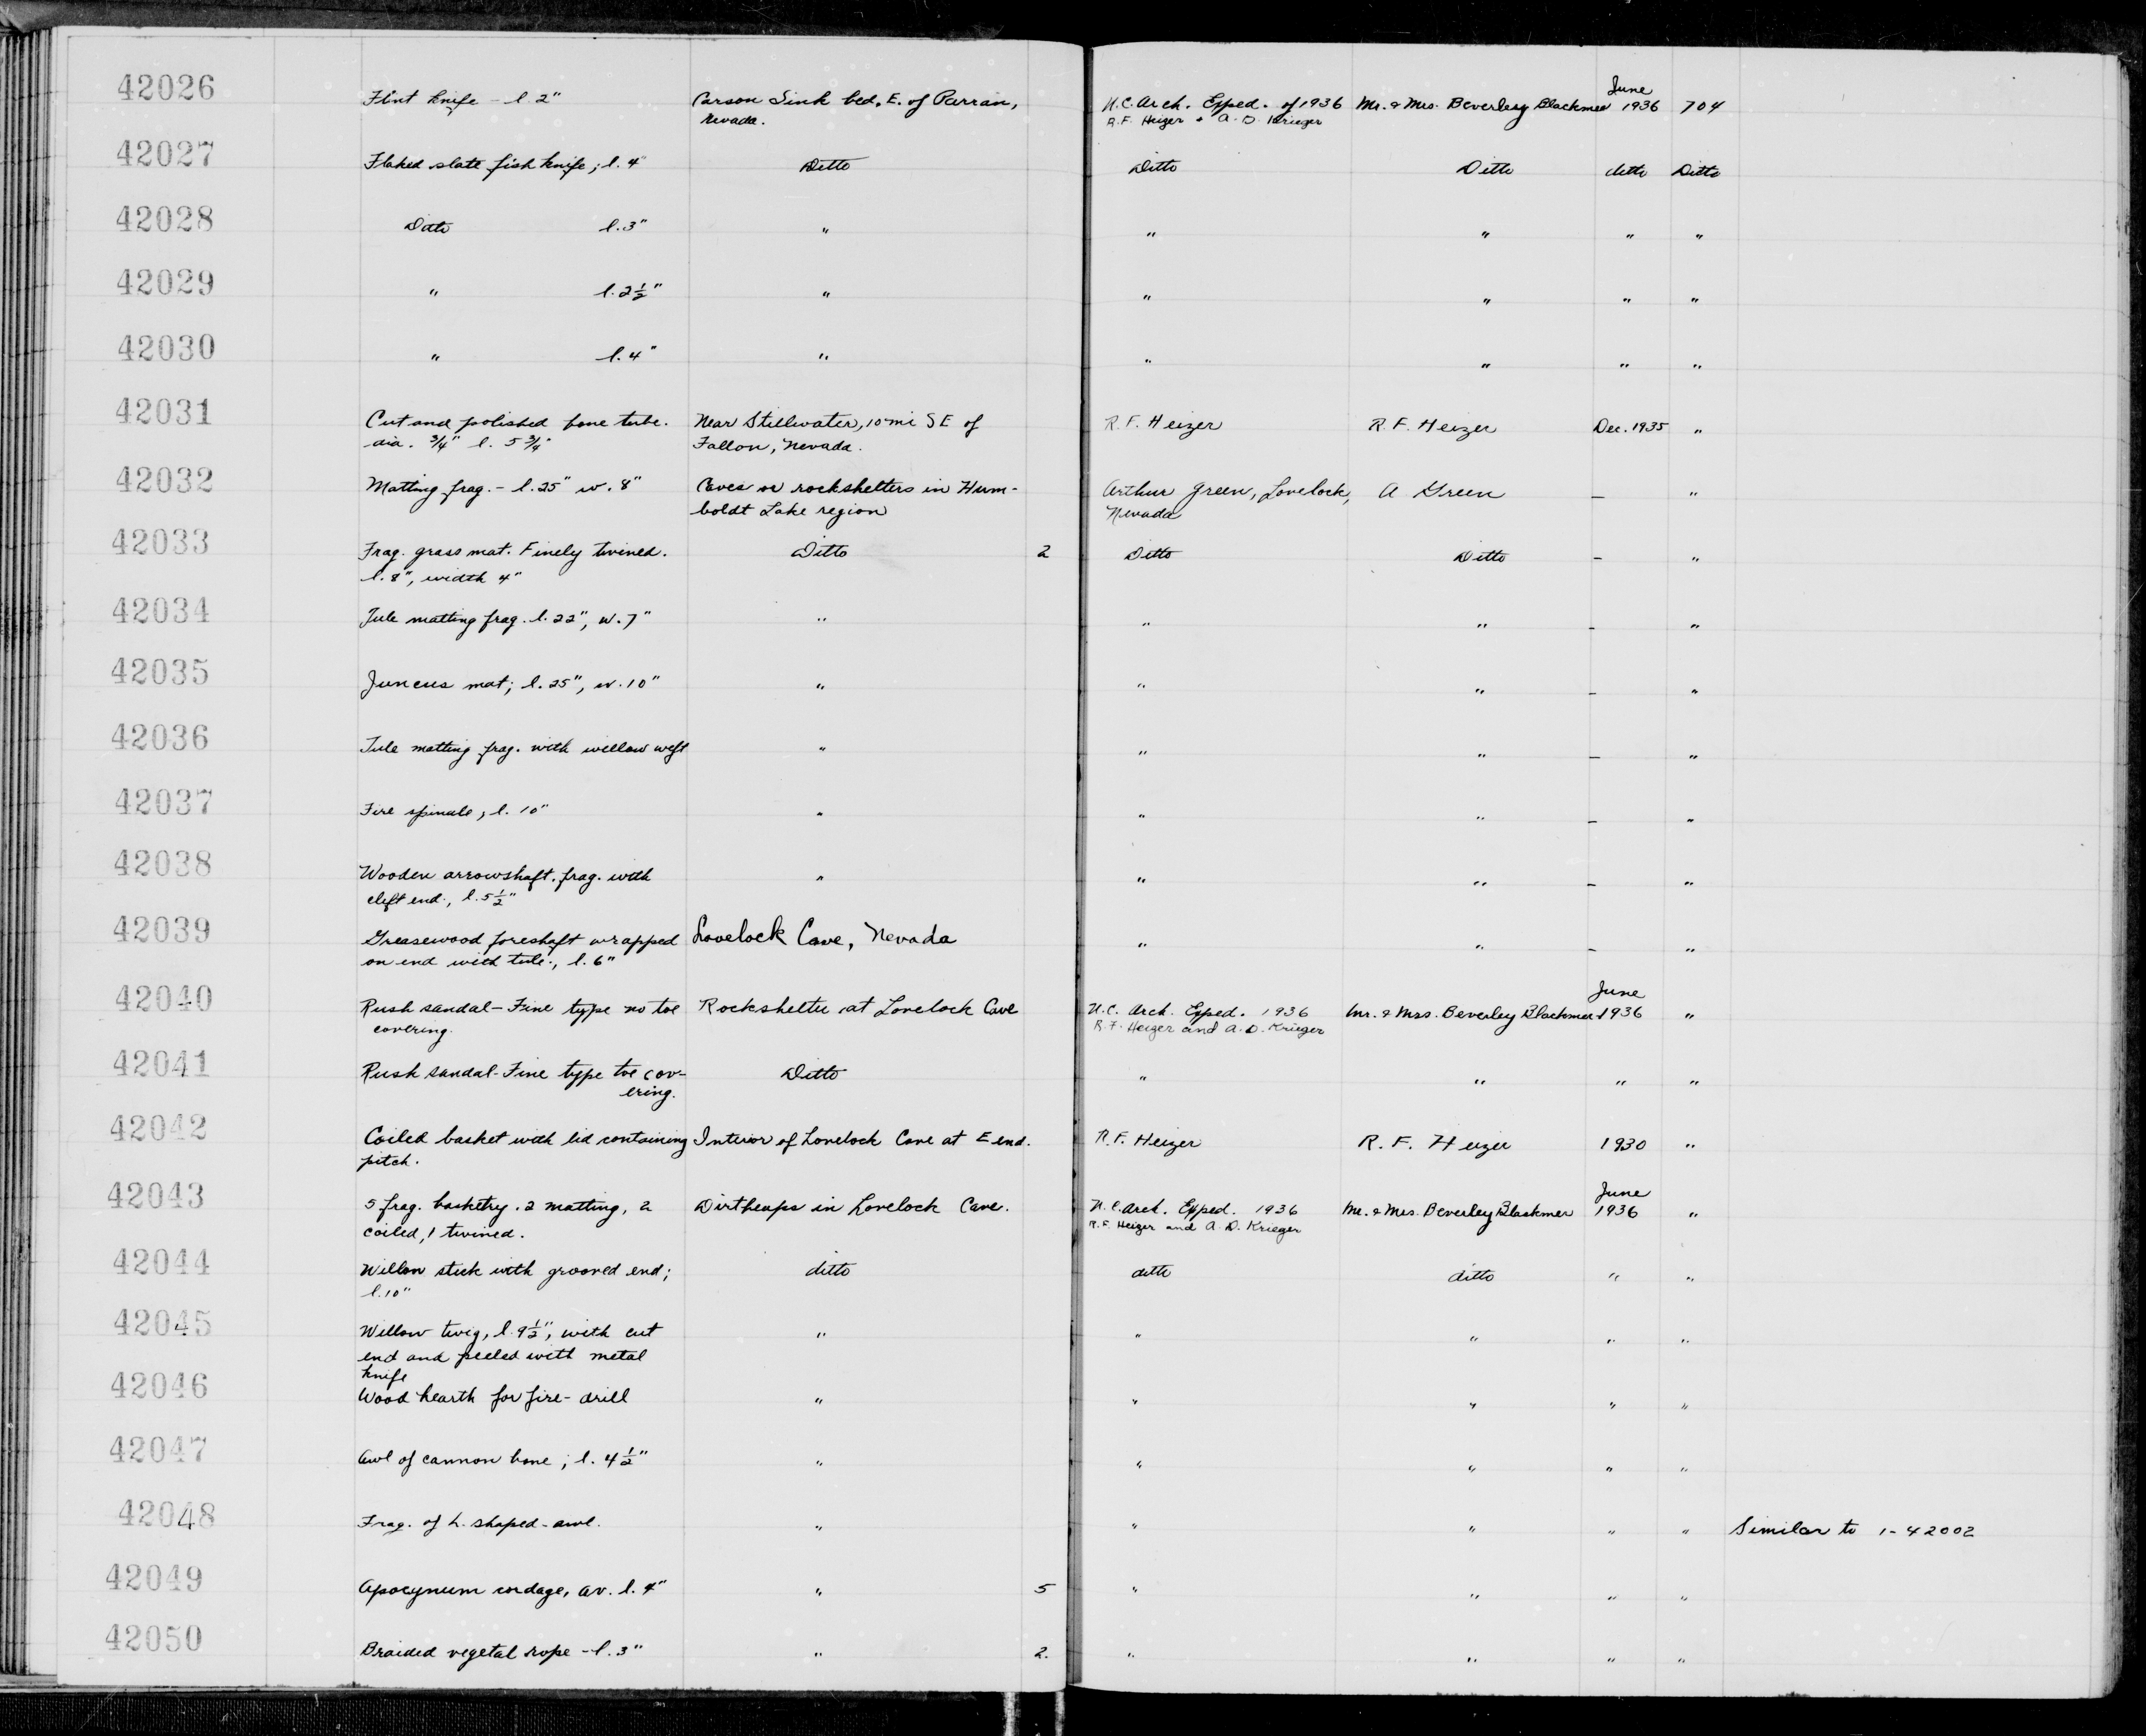 42026 Flint knife - l. 2" Carson Sink bed, E. of Parran, U.C. Arch. Exped. of 1936 Mr. & Mrs. Beverley Blackmer June 1936 704
Nevada. R.F. Heizer & A.D. Krieger
42027 Flaked slate fish knife; l. 4" Ditto Ditto Ditto ditto Ditto
42028 Ditto l. 3" " " " " "
42029 " l. 2½" " " " " "
42030 " l. 4" " " " " "
42031 Cut and polished bone tube. Near Stillwater, 10 mi SE of R.F. Heizer R.F. Heizer Dec. 1935 "
dia. 3/4" l. 5 3/4" Fallon, Nevada.
42032 Matting frag. - l. 25" w. 8" Caves or rockshelters in Hum- Arthur Green, Lovelock, A Green — "
boldt Lake region Nevada
42033 Frag. grass mat. Finely twined. Ditto 2 Ditto Ditto — "
l. 8", width 4"
42034 Tule matting frag. l. 22", w. 7" " " " — "
42035 Juncus mat; l. 25", w. 10" " " " — "
42036 Tule matting frag. with willow weft " " " — "
42037 Fire spindle, l. 10" " " " — "
42038 Wooden arrowshaft. frag. with " " " — "
cleft end., l. 5½"
42039 Greasewood foreshaft wrapped Lovelock Cave, Nevada " " — "
on end with tule., l. 6"
42040 Rush sandal - Fine type no toe Rockshelter at Lovelock Cave U.C. Arch. Exped. 1936 Mr. & Mrs. Beverley Blackmer June 1936 "
covering. R.F. Heizer and A.D. Krieger
42041 Rush sandal - Fine type toe cov- Ditto " " " "
ering.
42042 Coiled basket with lid containing Interior of Lovelock Cave at E end. R.F. Heizer R.F. Heizer 1930 "
pitch.
42043 5 frag. basketry. 2 matting, 2 Dirtheaps in Lovelock Cave. U.C. Arch. Exped. 1936 Mr. & Mrs. Beverley Blackmer June 1936 "
coiled, 1 twined. R.F. Heizer and A.D. Krieger
42044 Willow stick with grooved end; ditto ditto ditto " "
l. 10"
42045 Willow twig, l. 9½", with cut " " " " "
end and peeled with metal
knife
42046 Wood hearth for fire-drill " " " " "
42047 Awl of cannon bone; l. 4½" " " " " "
42048 Frag. of L. shaped-awl. " " " " " Similar to 1-42002
42049 Apocynum cordage, av. l. 4" " 5 " " " "
42050 Braided vegetal rope - l. 3" " 2. " " " "